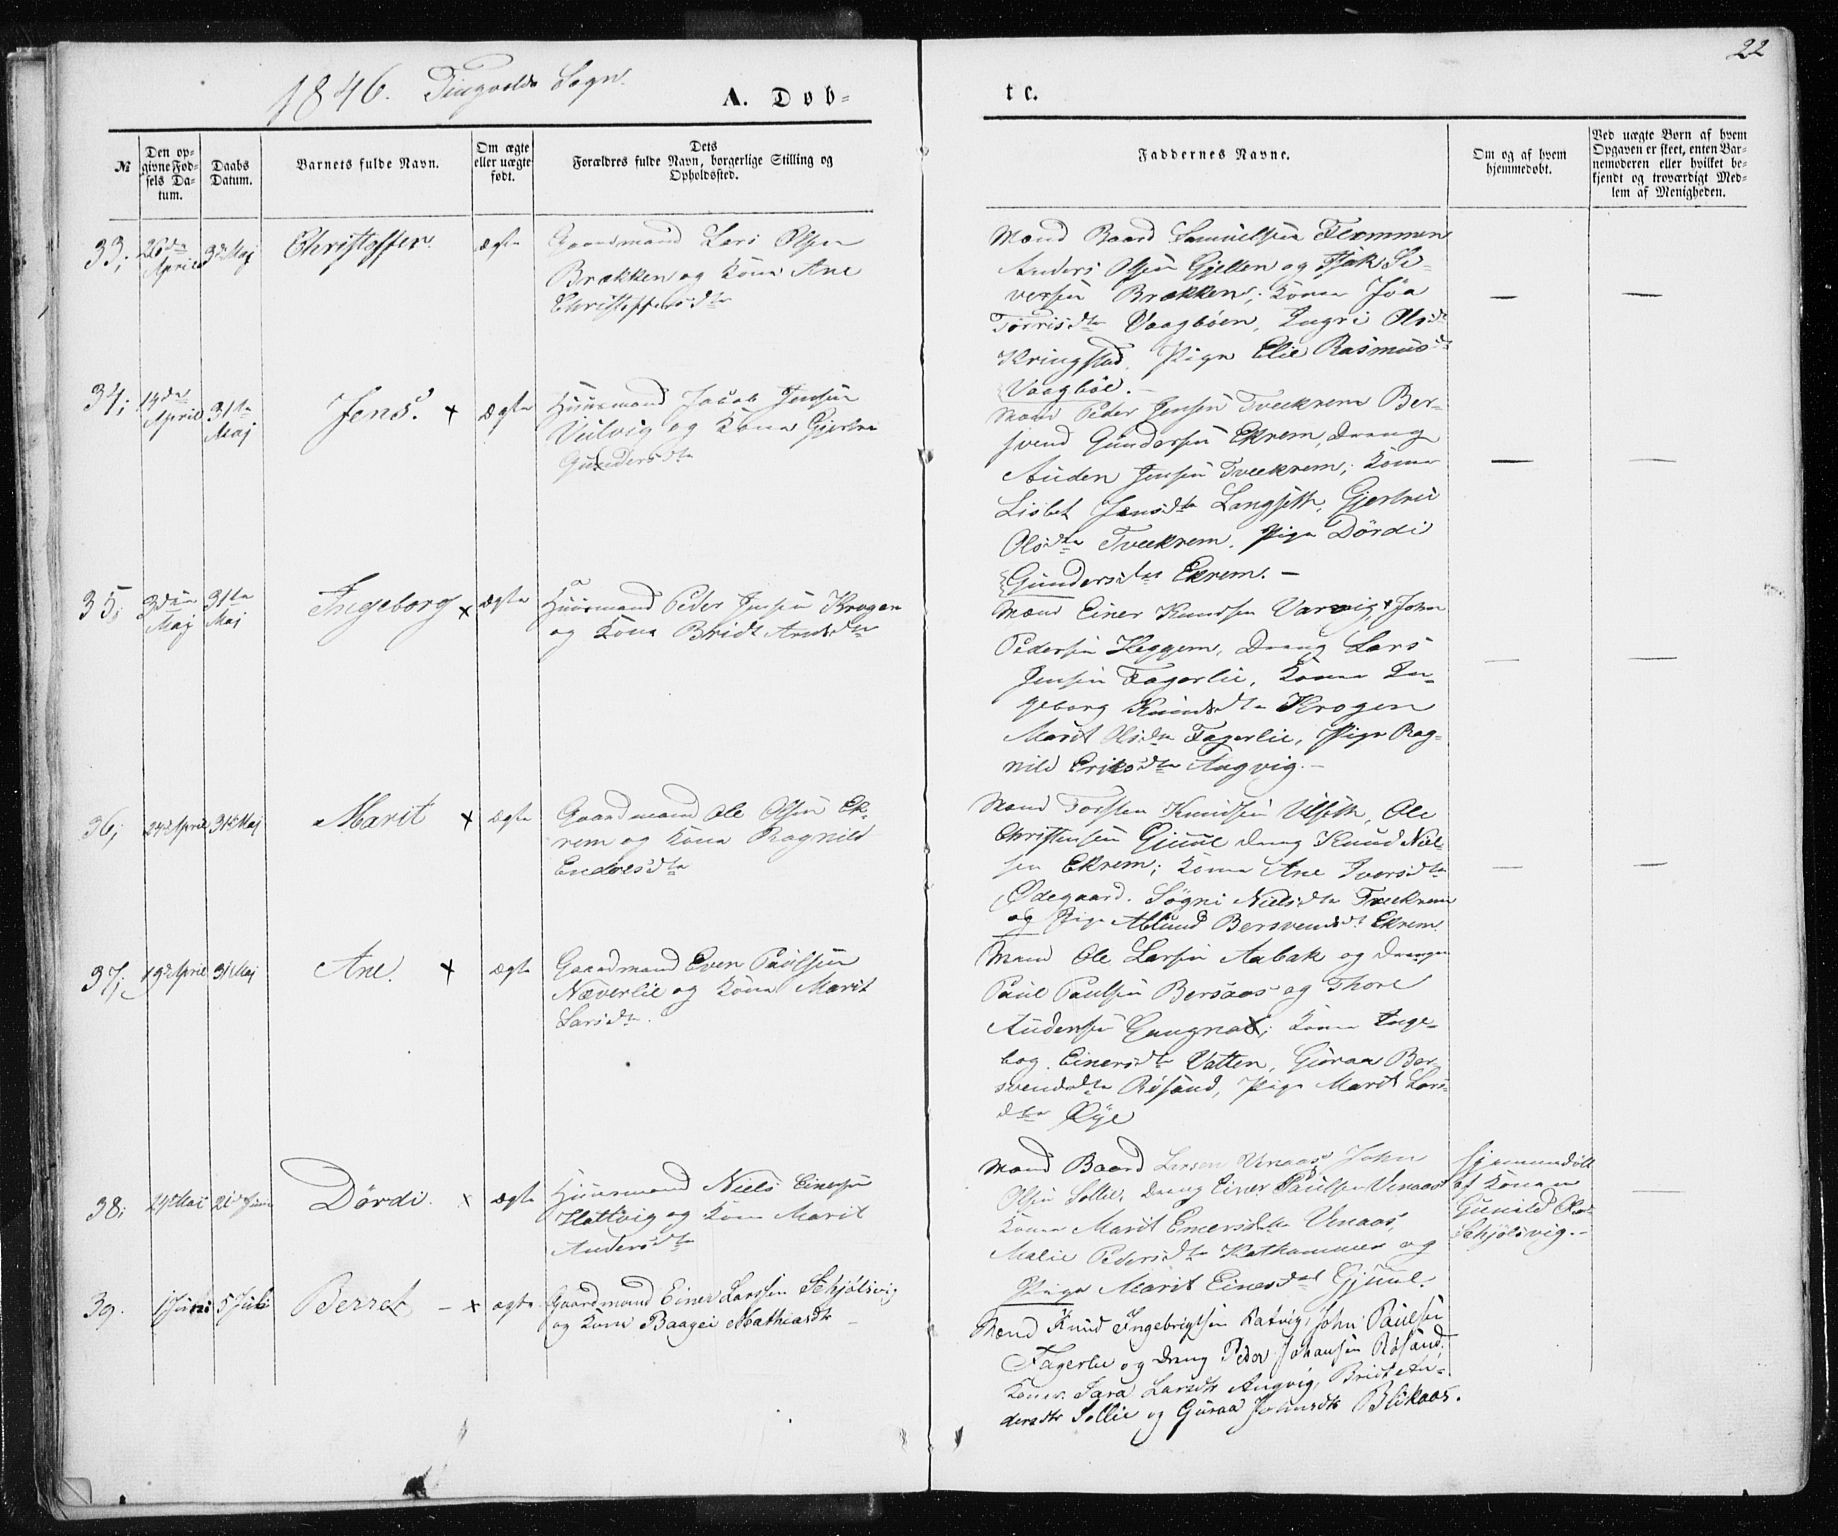 22
1846. Tingvolds Sogn.
A. Dob-
te.
№
Den op-
givne Fød-
sels Da-
tum.
Daabs
Datum.
Barnets fulde Navn.
Om ægte
eller uægte
født.
Dets
Forældres fulde Navn, borgerlige Stilling og
Opholdssted.
Faddernes Navne.
Om og af hvem
hjemmedøbt.
Ved uægte Børn af hvem
Opgaven er skeet, enten Bar-
nemoderen eller hvilket be-
kjendt og troværdigt Med-
lem af Menigheden.
33,
26de
April
3die Maj
Christoffer.
ægte
Gaardmand Lars Olsen
Brækken og Kone Ane
Christoffersdtr
Mænd Baard Samuelsen Flemmen
Anders Olsen Gjelten og Isak Si-
versen Brækken; Koner Jöa
Torrisdtr Vaagböen, Ingri Olsdtr
Kringstad, Pige Elie Rasmusdtr
Vaagböe. —
—
—
34,
14de
April
31te
Maj
Jens. x
ægte
Huusmand Jacob Jensen
Vulvig og Kone Gjertru
Gundersdtr
Mænd Peder Jensen Tveekrem Ber-
svend Gundersen Ekrem, Dreng
Auden Jensen Tveekrem; Koner
Lisbet Jensdtr Langseth, Gjertru
Olsdtr Tveekrem, Pige Dördi
Gundersdtr Ekrem. —
—
—
35,
3die
Maj
31te
Maj
Ingeborg x
ægte
Huusmand Peder Jensen Krogen
og Kone Bridt Arnesdtr
Mænd Einer Knudsen Varvig, John
Pedersen Heggem, Dreng Lars
Jensen Fagerlie, Koner In-
geborg Knudsdtr Krogen
Marit Olsdtr Fagerlie, Pige Rag-
nild Eriksdtr Angvig. —
—
—
36,
24de April
31te Maj
Marit x
ægte
Gaardmand Ole Olsen Ek-
rem og Kone Ragnild
Endresdtr
Mænd Torsten Knudsen Ulseth, Ole
Christensen Gjuul Dreng Knud Niel-
sen Ekrem; Koner Ane Iversdtr
Ødegaard. Sögni Nielsdtr Tveekrem
og Pige Ablund Bersvendsdt Ekrem.
—
—
37,
19de April
31 Maj
Ane. x
ægte
Gaardmand Even Paulsen
Næverlie og Kone Marit
Larsdtr.
Mænd Ole Larsen Aabak og Drenge
Paul Paulsen Bersaas og Thore
Andersen Gangnat; Koner Inge-
bog Einersdtr Vatten, Guraa Ber-
svendsdtr Rösand, Pige Marit Lars-
dtr Øye
38,
24de Mai
21de Juni
Dördi. x
ægte
Huusmand Niels Einersen
Hattvig og Kone Marit
Andersdtr
Mænd Baard Larsen Venaas John
Olsen Sollie, Dreng Einer Paulsen Venaas
Koner Marit Einersdtr Venaas,
Malie Pedersdtr Kathammer og
Pige Marit Einersdtr Gjuul.
Hjemmedöbt
af Konen
Gunild
Schjölsvig. —
—
39.
1 Juni
5 Juli
Berret — x
ægte
Gaardmand Einer Larssen Schjölsvig
og Kone Baagei Mathiasdtr —
Mænd Knud Ingebrigtsen Ratvig, John Paulsen
Fagerlie og Dreng Peder Johansen Rösand.
Koner Sara Larsdtr Angvig, Brit An-
dersdtr Sollie og Guraa Johnsdtr Blikaas.